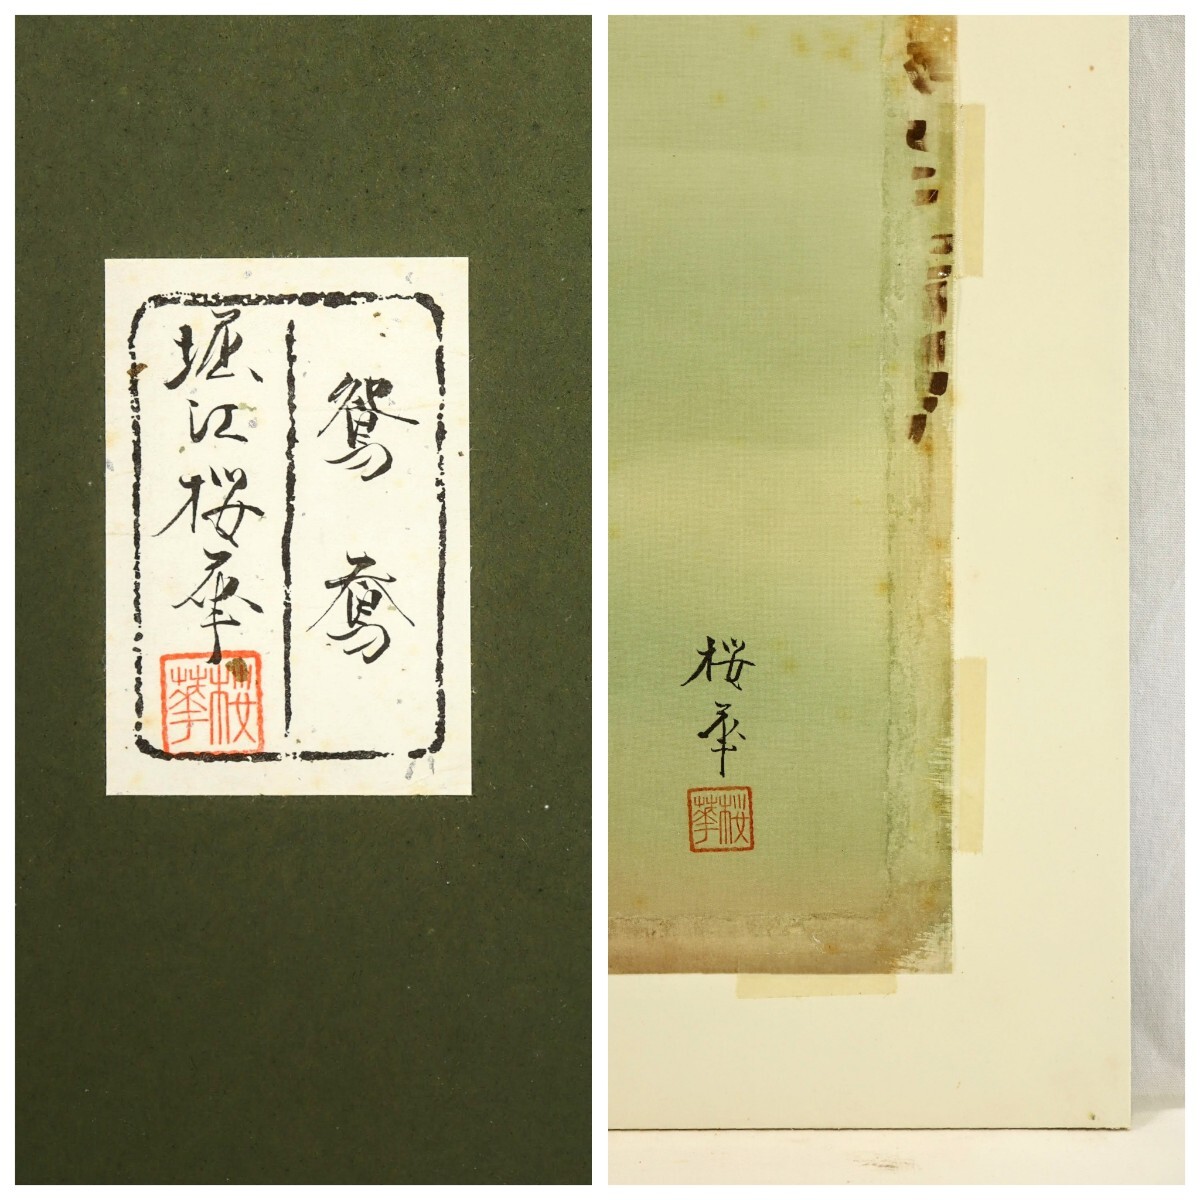 鴛鴦
堀江桜華
桜華
桜華
桜華